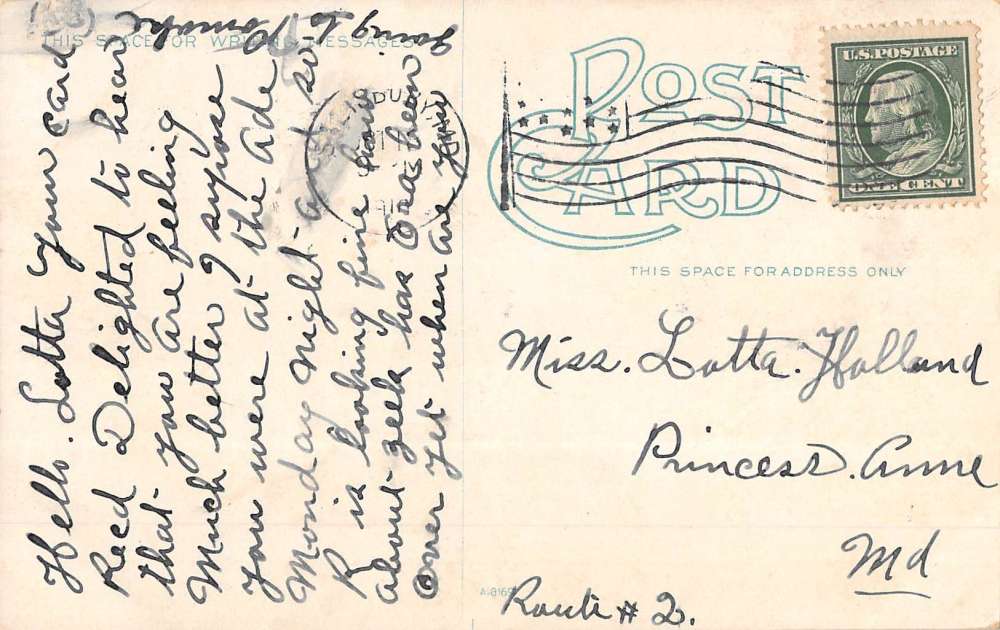 THIS SPACE FOR WRITING MESSAGES
Hello. Lotta your card
Recd Delighted to hear
that you are feeling
Much better I supose
you were at the Ade
Monday night and so
R is looking fine
about zeek has Oda been
Over yet when are you
going to Pomoke
POST
CARD
U.S. POSTAGE
ONE CENT
THIS SPACE FOR ADDRESS ONLY
Miss. Lotta. Holland
Princess. Anne
Md
Route # 2.